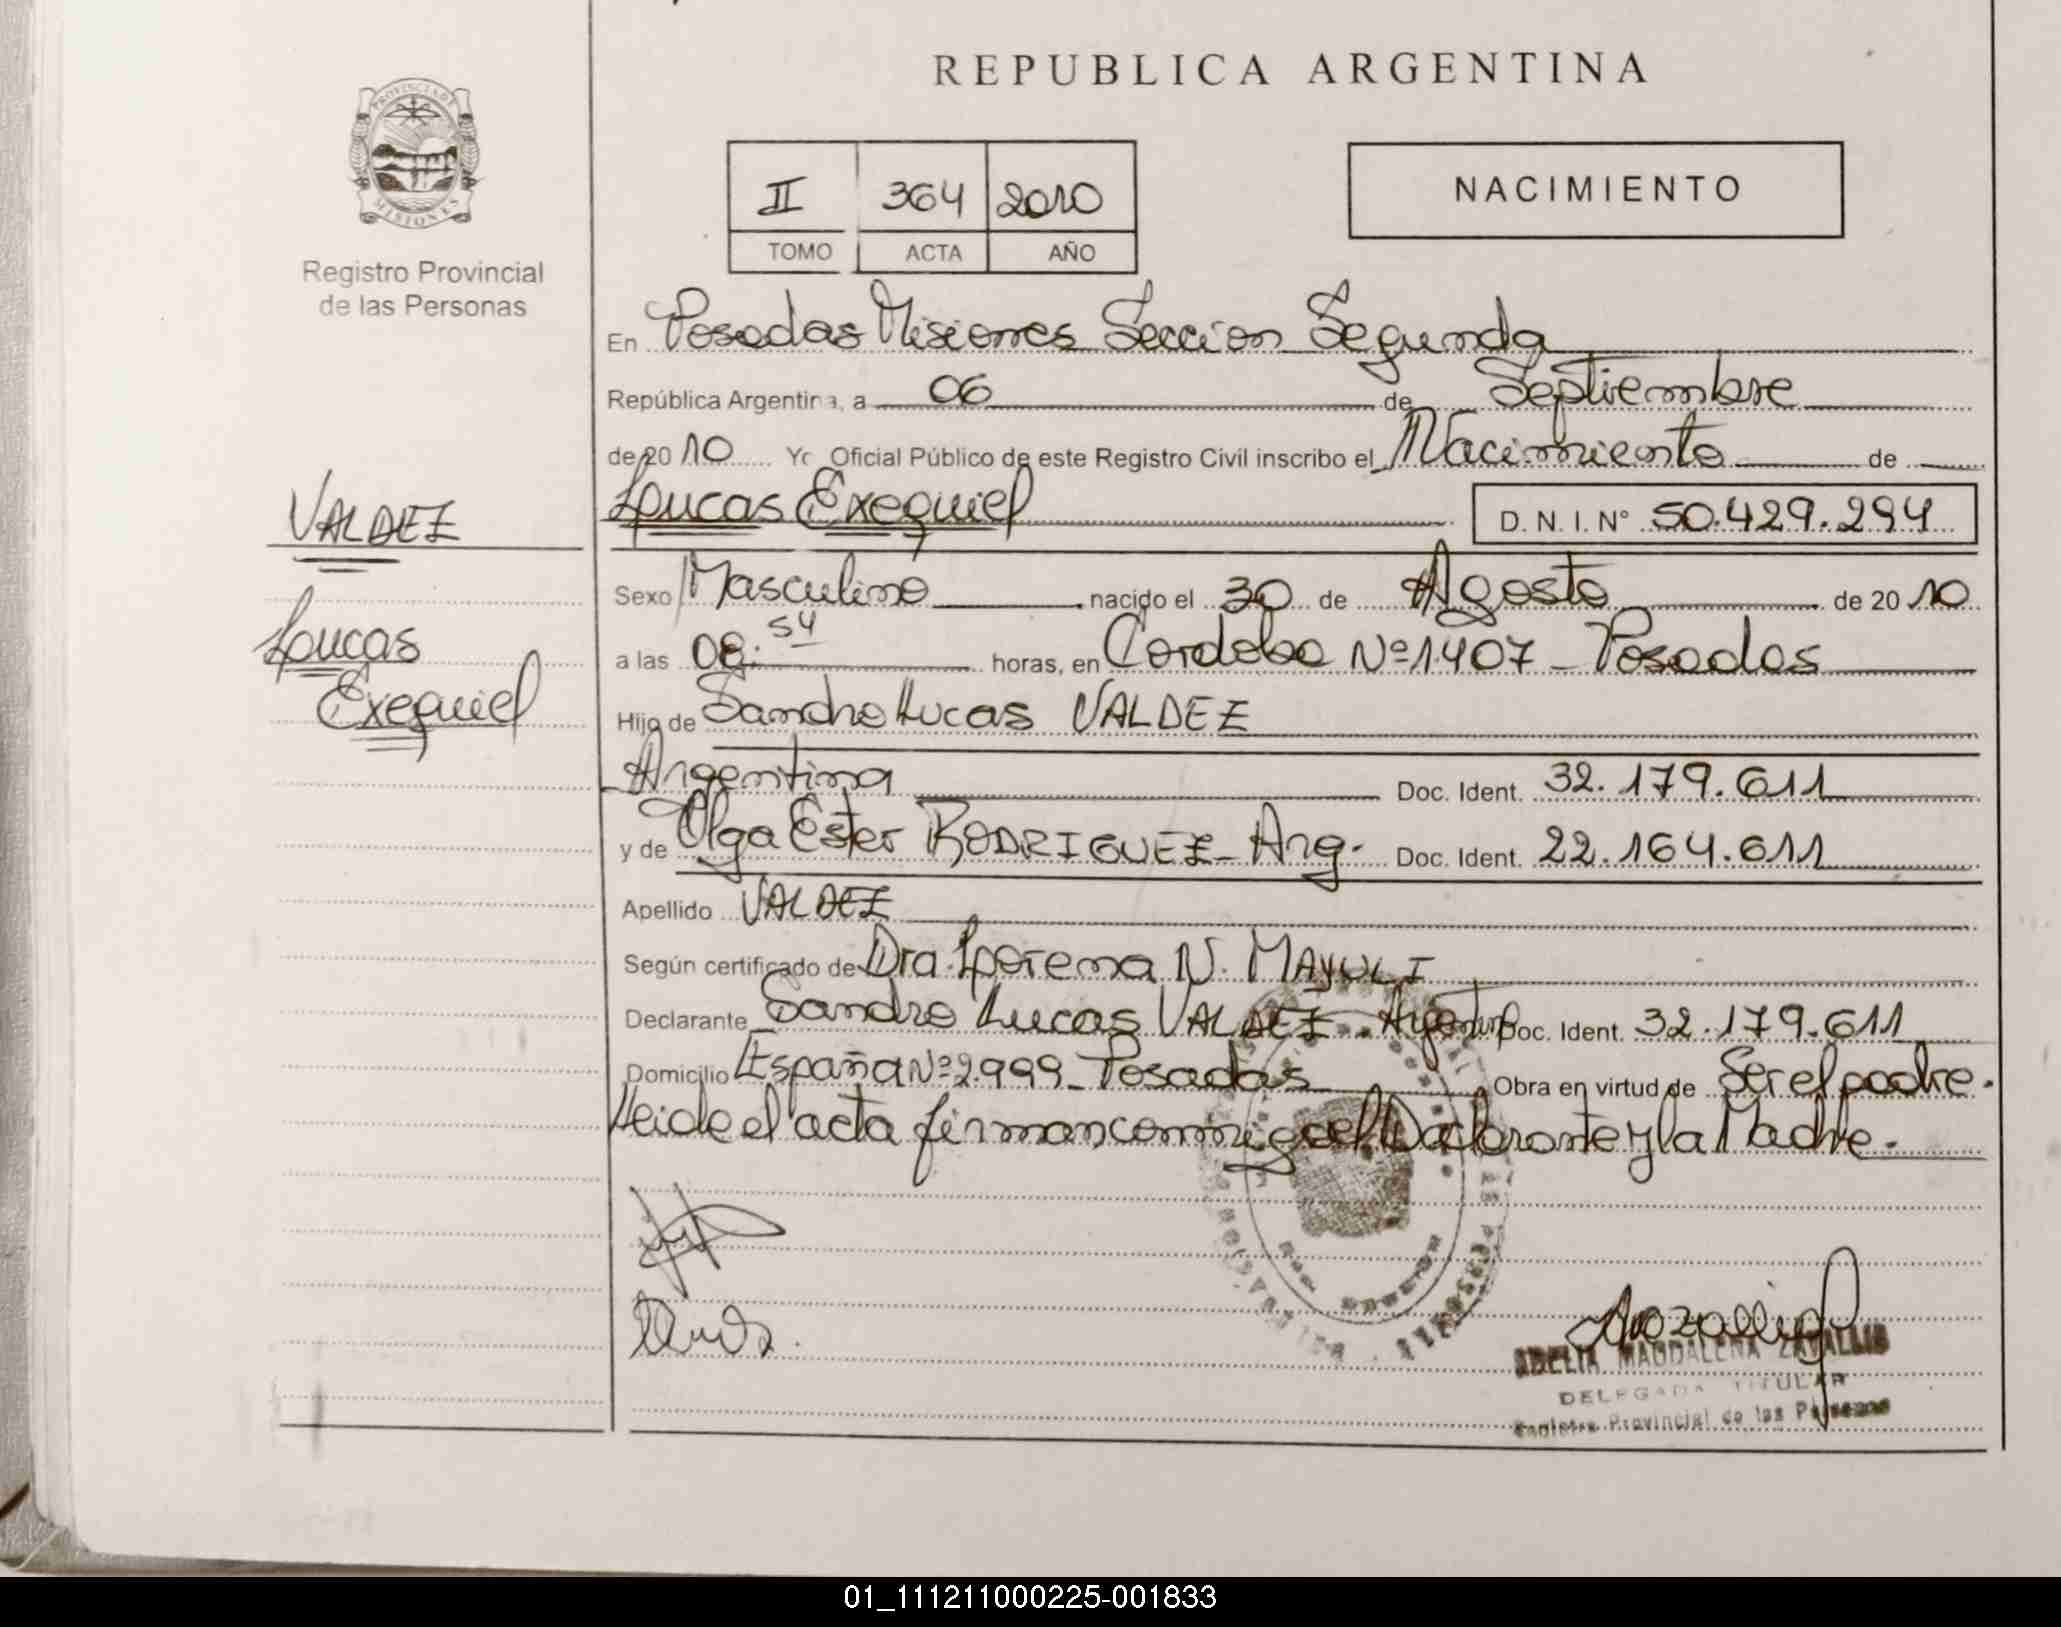 REPUBLICA ARGENTINA
PROVINCIA DE MISIONES
Registro Provincial
de las Personas
II 364 2010
TOMO ACTA AÑO
NACIMIENTO
En Posadas Misiones Seccion Segunda
República Argentina, a 06 de Septiembre
de 2010 Yo Oficial Público de este Registro Civil inscribo el Nacimiento de
VALDEZ
Lucas Exequiel D. N. I. N° 50.429.294
Sexo Masculino nacido el 30 de Agosto de 2010
Lucas
Exequiel
a las 08:54 horas, en Cordoba Nº 1407 - Posadas
Hijo de Sandro Lucas VALDEZ
Argentina Doc. Ident. 32.179.611
y de Olga Ester RODRIGUEZ - Arg. Doc. Ident. 22.164.611
Apellido VALDEZ
Según certificado de Dra. Lorena N. MAYULI
Declarante Sandro Lucas VALDEZ - Argentino Doc. Ident. 32.179.611
Domicilio España Nº 2.999 - Posadas Obra en virtud de Ser el padre.
Leida el acta firman conmigo el Declarante y la Madre.
ADELIA MAGDALENA ZAVALLIS
DELEGADA TITULAR
Registro Provincial de las Personas
01_111211000225-001833